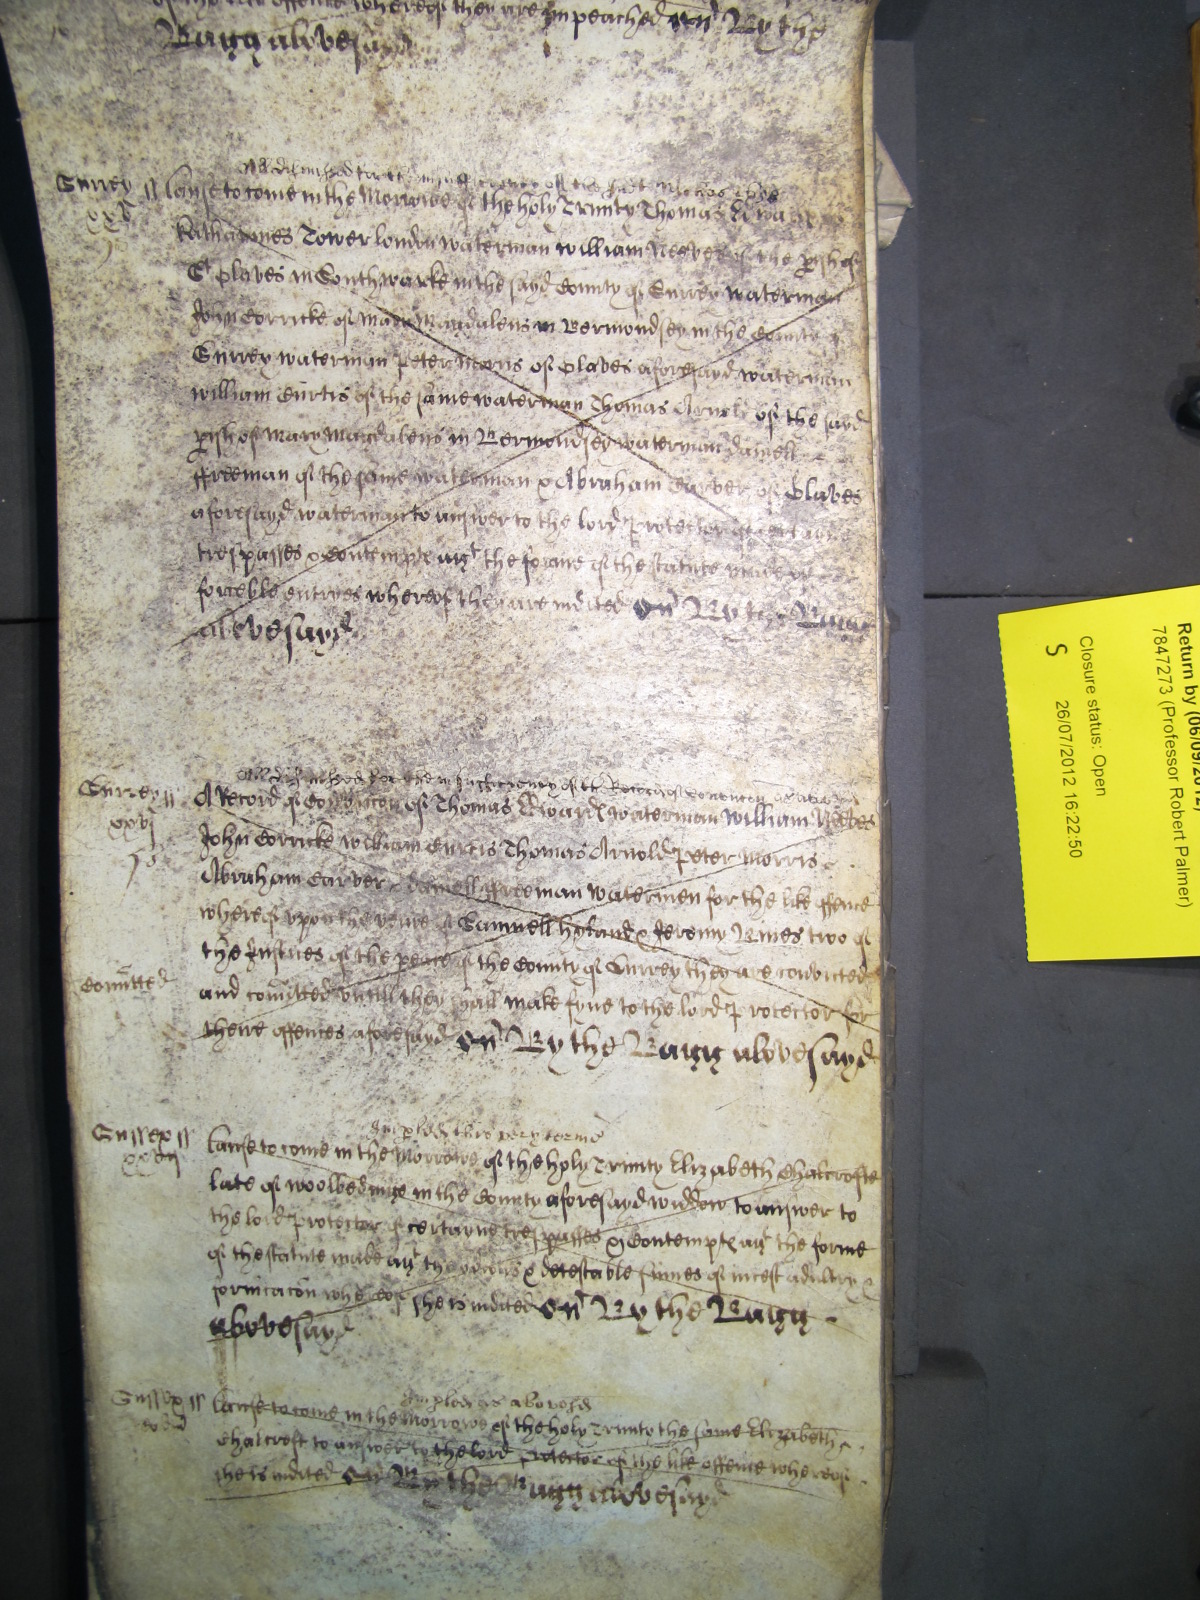 of the like offence whereof they are impeached By the
Bagg abovesayd
Surrey ss Cause to come in the Morrowe of the holy Trinity Thomas
xxv
Katharines Tower london waterman william Neeves of the pish of
Olaves in Southwarke in the sayd County of Surrey waterman
John Corricke of Mary Magdalens in Bermondsey in the County of
Surrey waterman Peter Morris of Olaves aforesayd waterman
william Curtis of the same waterman Thomas Arnold of the sayd
pish of Mary Magdalens in Bermondsey waterman daniell
ffreeman of the same waterman & Abraham Carver of Olaves
aforesayd waterman to answer to the lord Protector of certaine
trespasses & Contempts agt the forme of the statute made of
forceble entryes whereof they are indited By the Bagg
abovesayd
insufficiency of the Record of
Surrey ss A Record of Conviccon of Thomas waterman william Neeves
xxvj
John Corricke william Curtis Thomas Arnold Peter Morris
Abraham Carver & daniell ffreeman watermen for the like offence
whereof upon the veiwe of Samuell hyland & Jeremy Baines two of
the Justices of the peace of the County of Surrey they are convicted
Comitted
and comitted untill they shall make fyne to the lord Protector for
theire offences aforesayd By the Bagg abovesayd
this very terme
Sussex ss Cause to come in the Morrowe of the holy Trinity Elizabeth Chalcrofte
xxvij
late of woolbedinge in the County aforesayd widdow to answer to
the lord Protector of certaine trespasses & Contempts agt the forme
of the statute made agt the odious & detestable sinnes of incest adultry &
fornicacon whereof she is indited By the Bagg
abovesayd
as abovesd
Sussex ss Cause to come in the Morrowe of the holy Trinity the same Elizabeth
Chalcroft to answer to the lord Protector of the like offence whereof
she is indited By the Bagg abovesayd
Return by (06/09/2012)
7847273 (Professor Robert Palmer)
Closure status: Open
S 26/07/2012 16:22:50